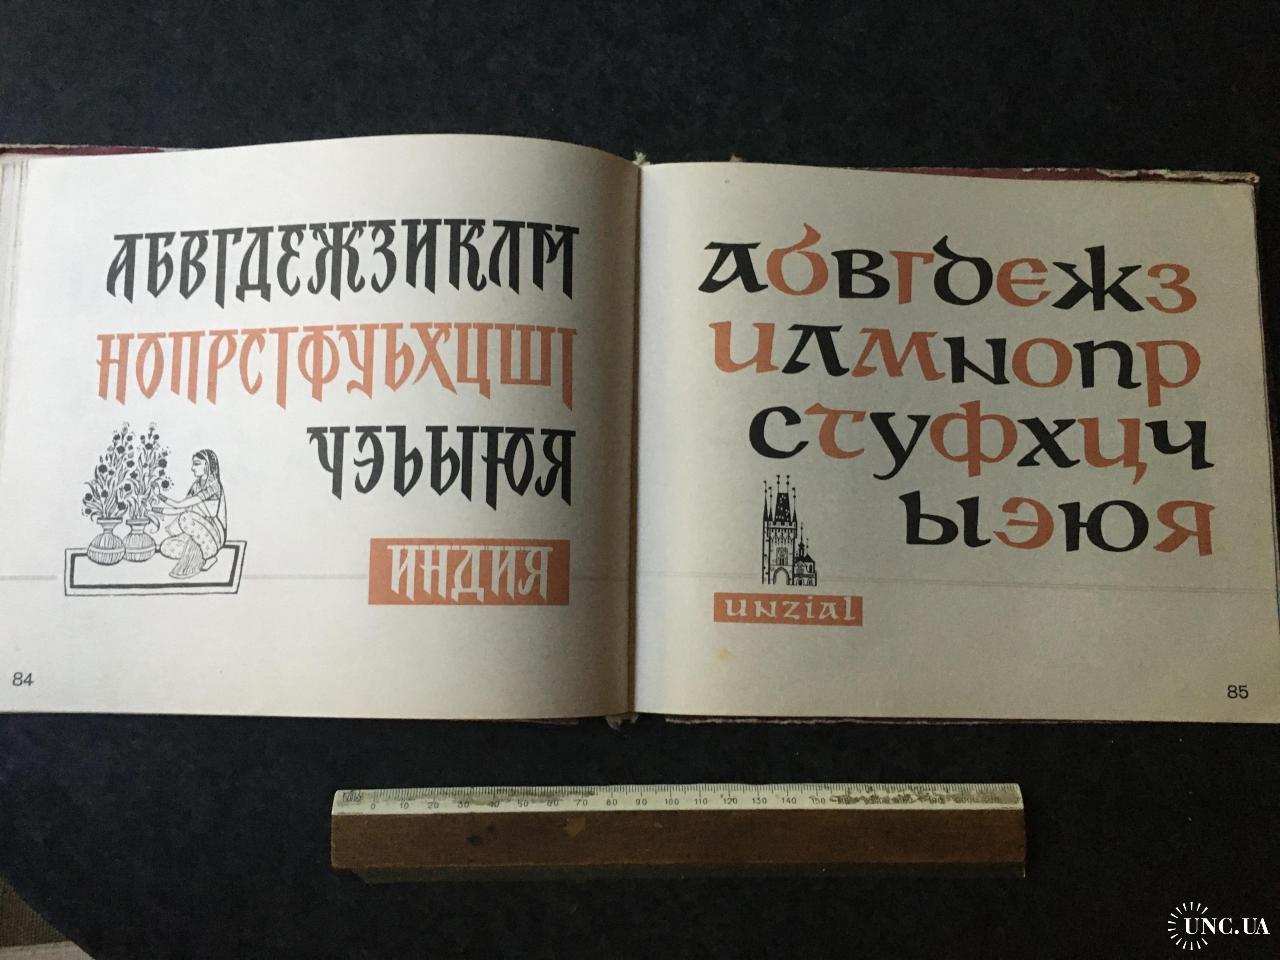 АБВГДЕЖЗИКЛМ
НОПРСТФУЬХЦШ
ЧЭЬЫЮЯ
ИНДИЯ
84
абвгдежз
илмнопр
стуфхцч
ыэюя
unzial
85
0 10 20 30 40 50 60 70 80 90 100 110 120 130 140 150
UNC.UA